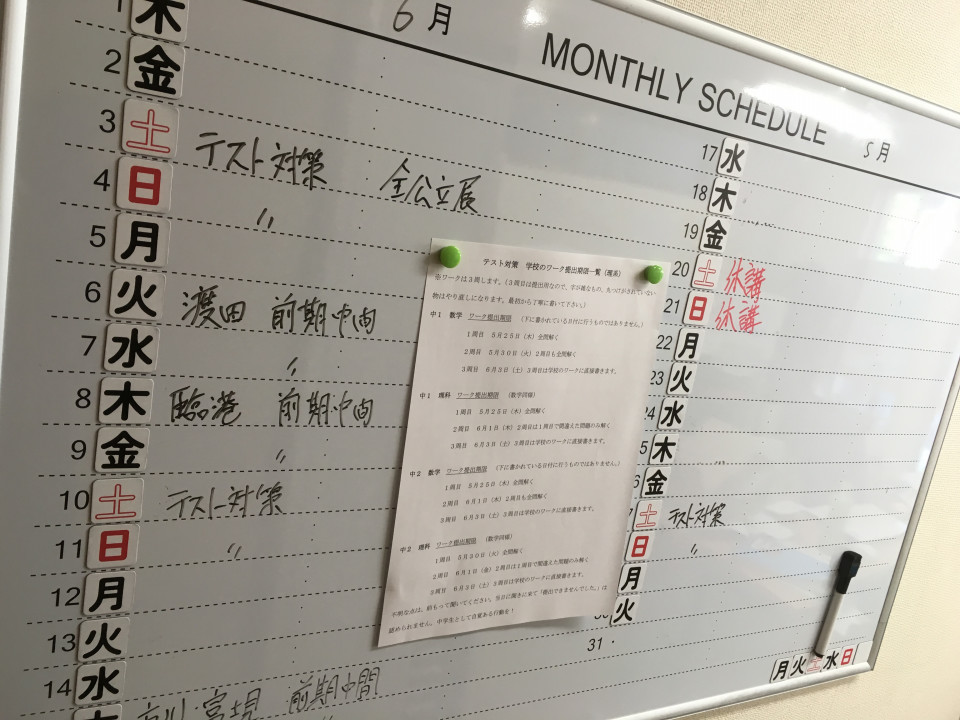 6月
MONTHLY SCHEDULE 5月
1 木
2 金
3 土 テスト対策 全公立展
4 日 〃
5 月
6 火 渡田 前期中間
7 水 〃
8 木 臨港 前期中間
9 金 〃
10 土 テスト対策
11 日 〃
12 月
13 火
14 水
富士見 前期中間
テスト対策 学校のワーク提出期限一覧(理系)
※ワークは3周します。(3周目は提出用なので、字が雑なもの、丸つけがされていない
物はやり直しになります。最初から丁寧に書いて下さい。)
中1 数学 ワーク提出期限 (下に書かれている日付に行うものではありません。)
1周目 5月25日(木)全問解く
2周目 5月30日(火)2周目も全問解く
3周目 6月3日(土)3周目は学校のワークに直接書きます。
中1 理科 ワーク提出期限 (数学同様)
1周目 5月25日(木)全問解く
2周目 6月1日(木)2周目は1周目で間違えた問題のみ解く
3周目 6月3日(土)3周目は学校のワークに直接書きます。
中2 数学 ワーク提出期限 (下に書かれている日付に行うものではありません。)
1周目 5月25日(木)全問解く
2周目 6月1日(木)2周目も全問解く
3周目 6月3日(土)3周目は学校のワークに直接書きます。
中2 理科 ワーク提出期限 (数学同様)
1周目 5月30日(火)全問解く
2周目 6月1日 2周目は1周目で間違えた問題のみ解く
3周目 6月3日(土)3周目は学校のワークに直接書きます。
不明な点は、前もって聞いてください。当日に聞きに来て「提出できませんでした。」は
認められません。中学生として自覚ある行動を!
17 水
18 木
19 金
20 土 休講
21 日 休講
22 月
23 火
24 水
5 木
6 金
7 土 テスト対策
日 〃
月
30 火
31
月 火 土 水 日